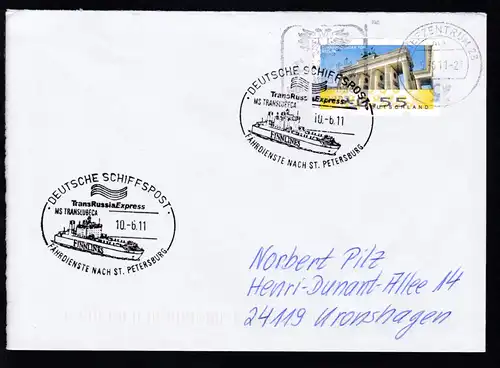 BRIEFZENTRUM 28
DEUTSCHE SCHIFFSPOST
TransRussiaExpress
MS TRANSLUBECA
10.-6.11
FINNLINES
FÄHRDIENSTE NACH ST. PETERSBURG
55
DEUTSCHLAND
DEUTSCHE SCHIFFSPOST
TransRussiaExpress
MS TRANSLUBECA
10.-6.11
FINNLINES
FÄHRDIENSTE NACH ST. PETERSBURG
Norbert Pilz
Henri-Dunant-Allee 14
24119 Kronshagen